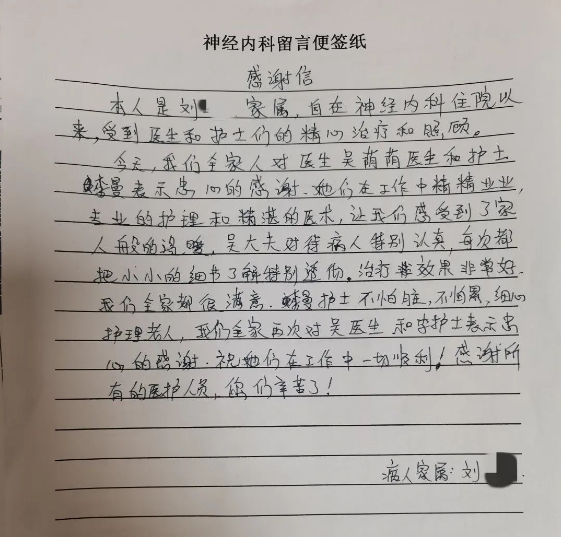 神经内科留言便签纸
感谢信
本人是刘 家属,自在神经内科住院以
来,受到医生和护士们的精心治疗和照顾。
今天,我们全家人对医生吴荫荫医生和护士
曼表示忠心的感谢.她们在工作中精精业业,
专业的护理和精湛的医术,让我们感受到了家
人般的温暖,吴大夫对待病人特别认真,每次都
把小小的细节了解特别透彻。治疗 效果非常好.
我们全家都很满意. 曼护士不怕脏,不怕累,细心
护理老人,我们全家再次对吴医生和李护士表示忠
心的感谢.祝她们在工作中一切顺利!感谢所
有的医护人员,你们辛苦了!
病人家属:刘